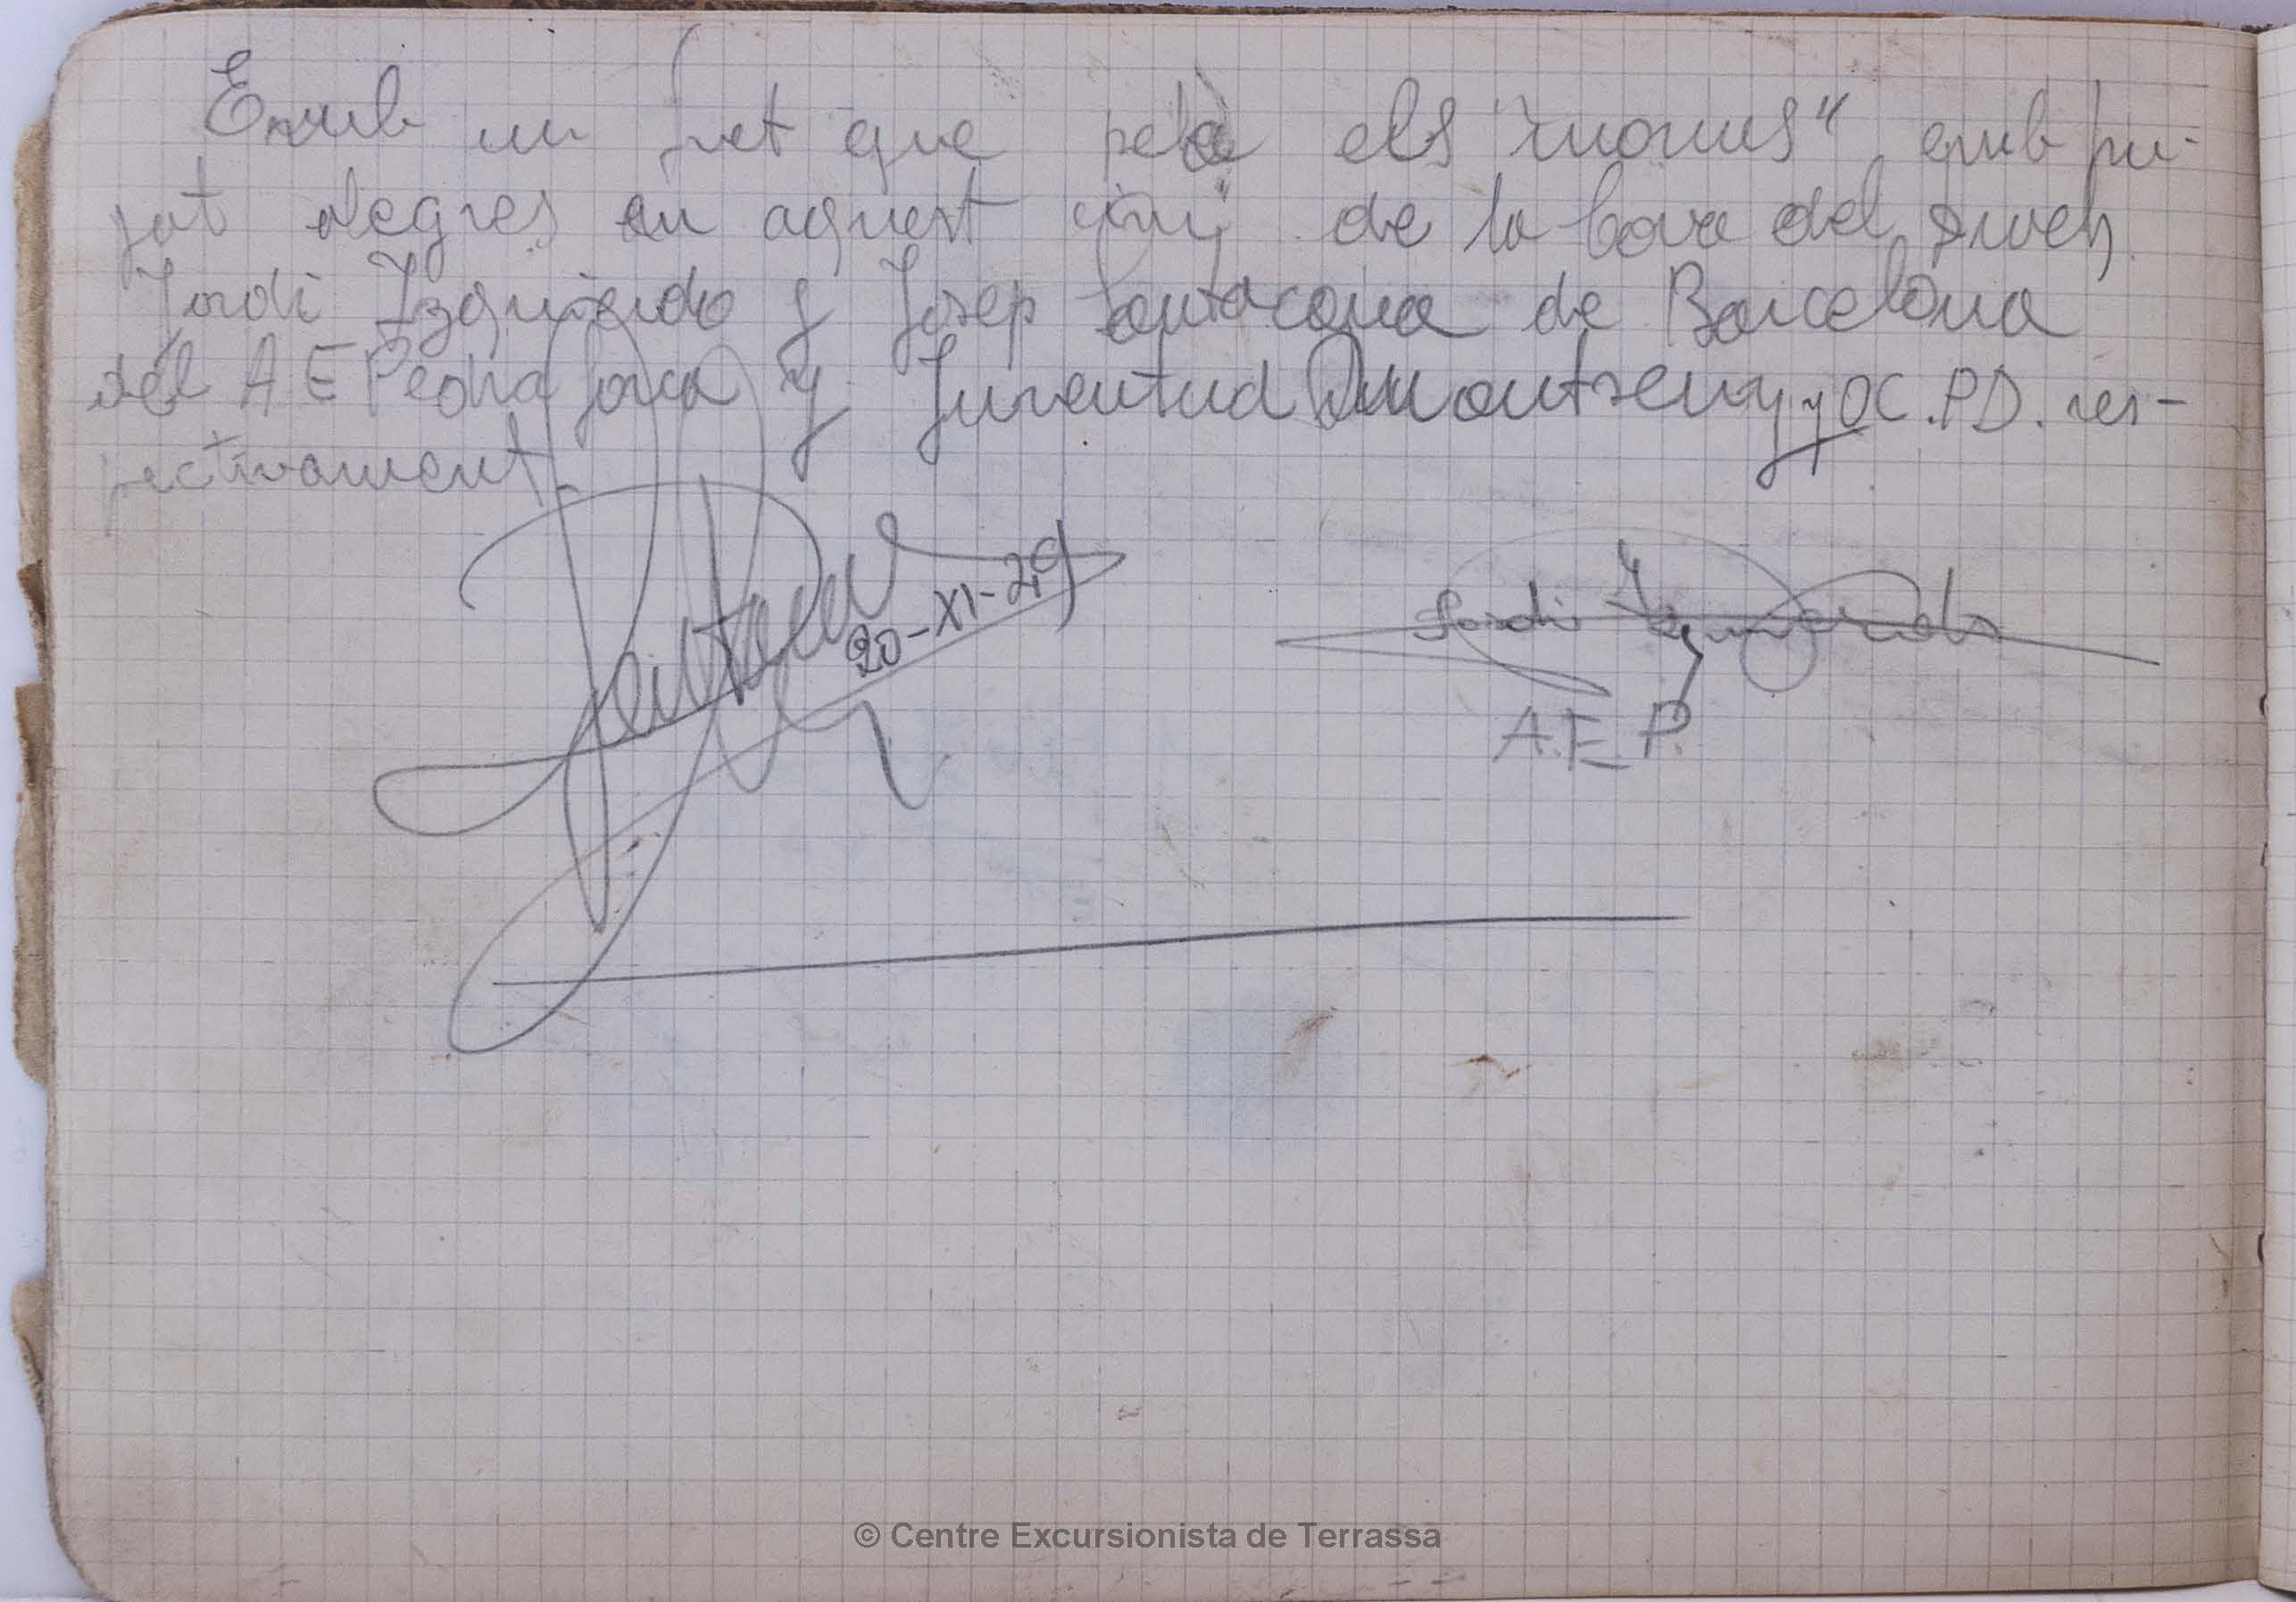 Emb un fret que pela els "monus" emb pu-
jat alegres en aquest cim de la Cova del Drach
Jordi Izquierdo y Josep Santacana de Barcelona
del A E Pedraforca y Juventud Montseny y OC.P.D. res-
pectivament.
20-XI-29
Jordi Izquierdo
A.E.P.
© Centre Excursionista de Terrassa